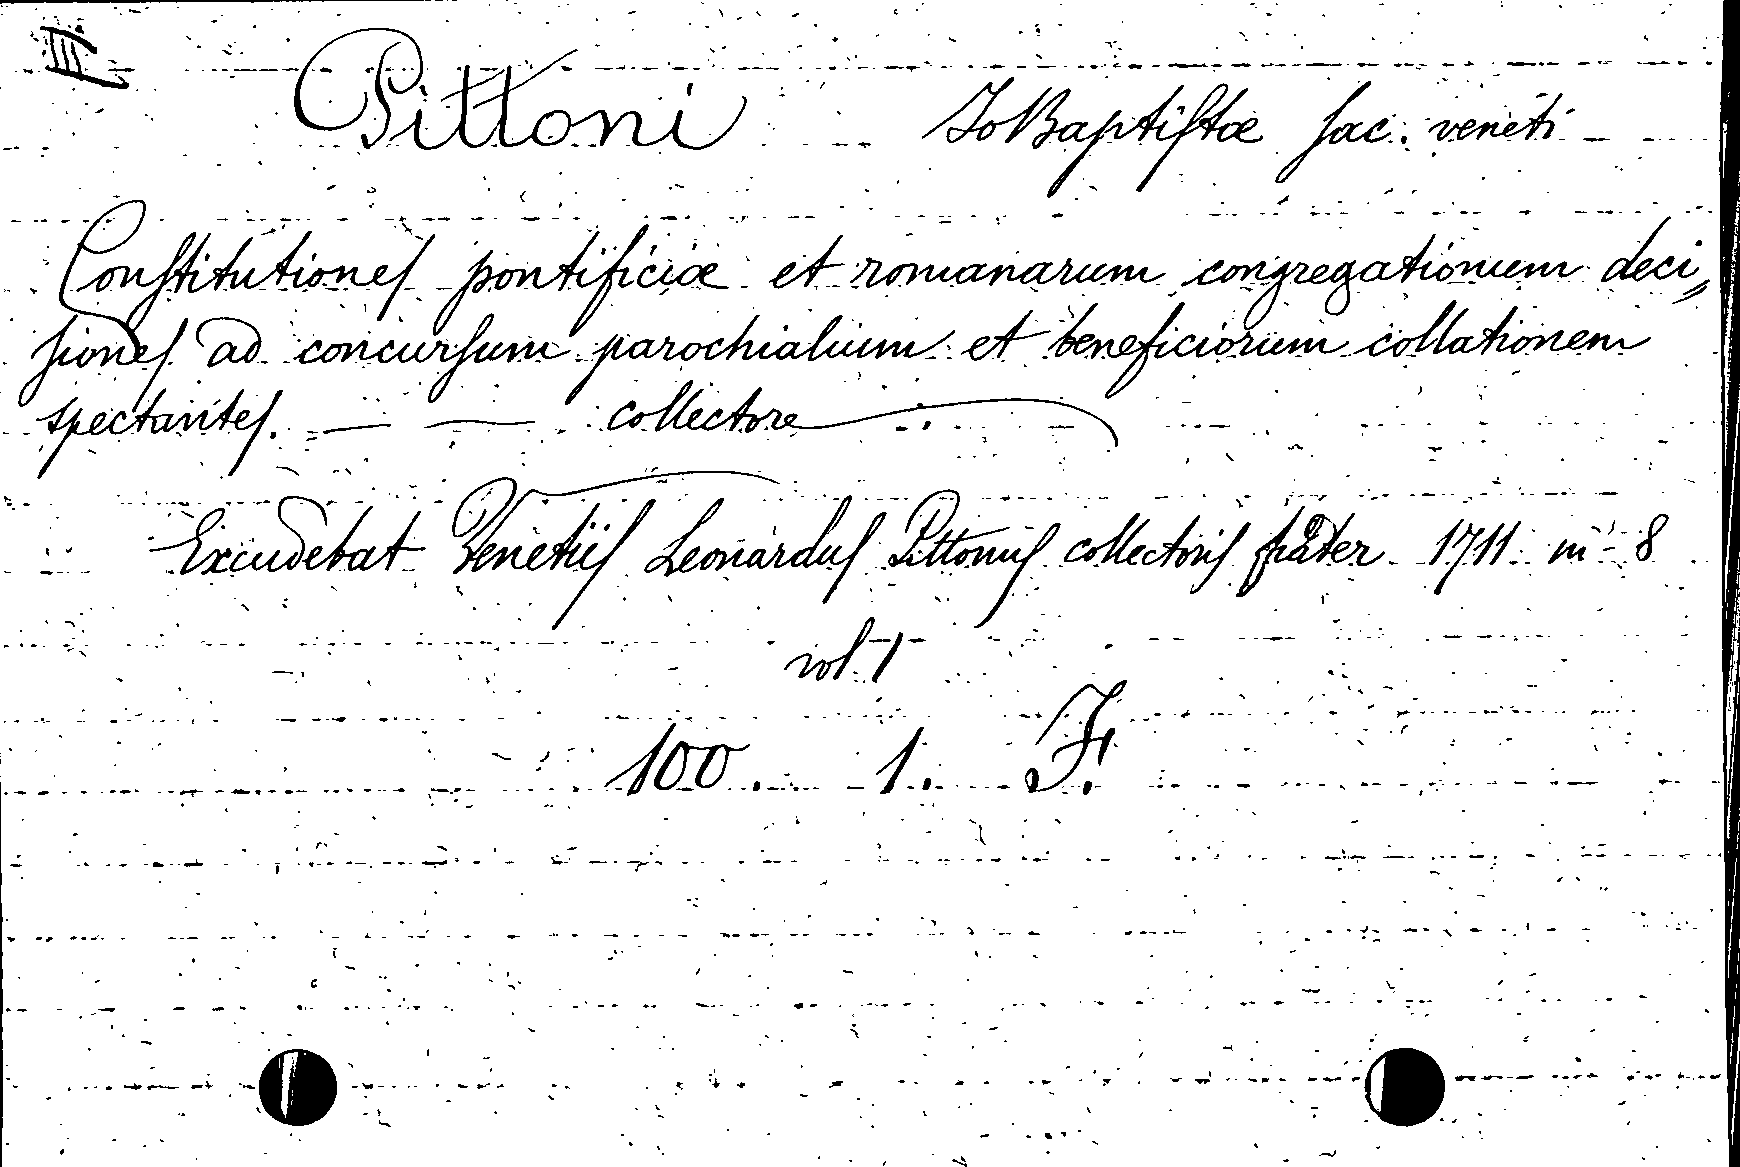 III
Pittoni Jo Baptistæ sac. veneti
Constitutiones pontificiæ et romanarum congregationum deci„
siones ad concursum parochialium et beneficiorum collationem
spectantes. — — collectore
Excudebat Venetiis Leonardus Pittonus collectoris frater 1711 in 8
vol 1
100. 1. F.